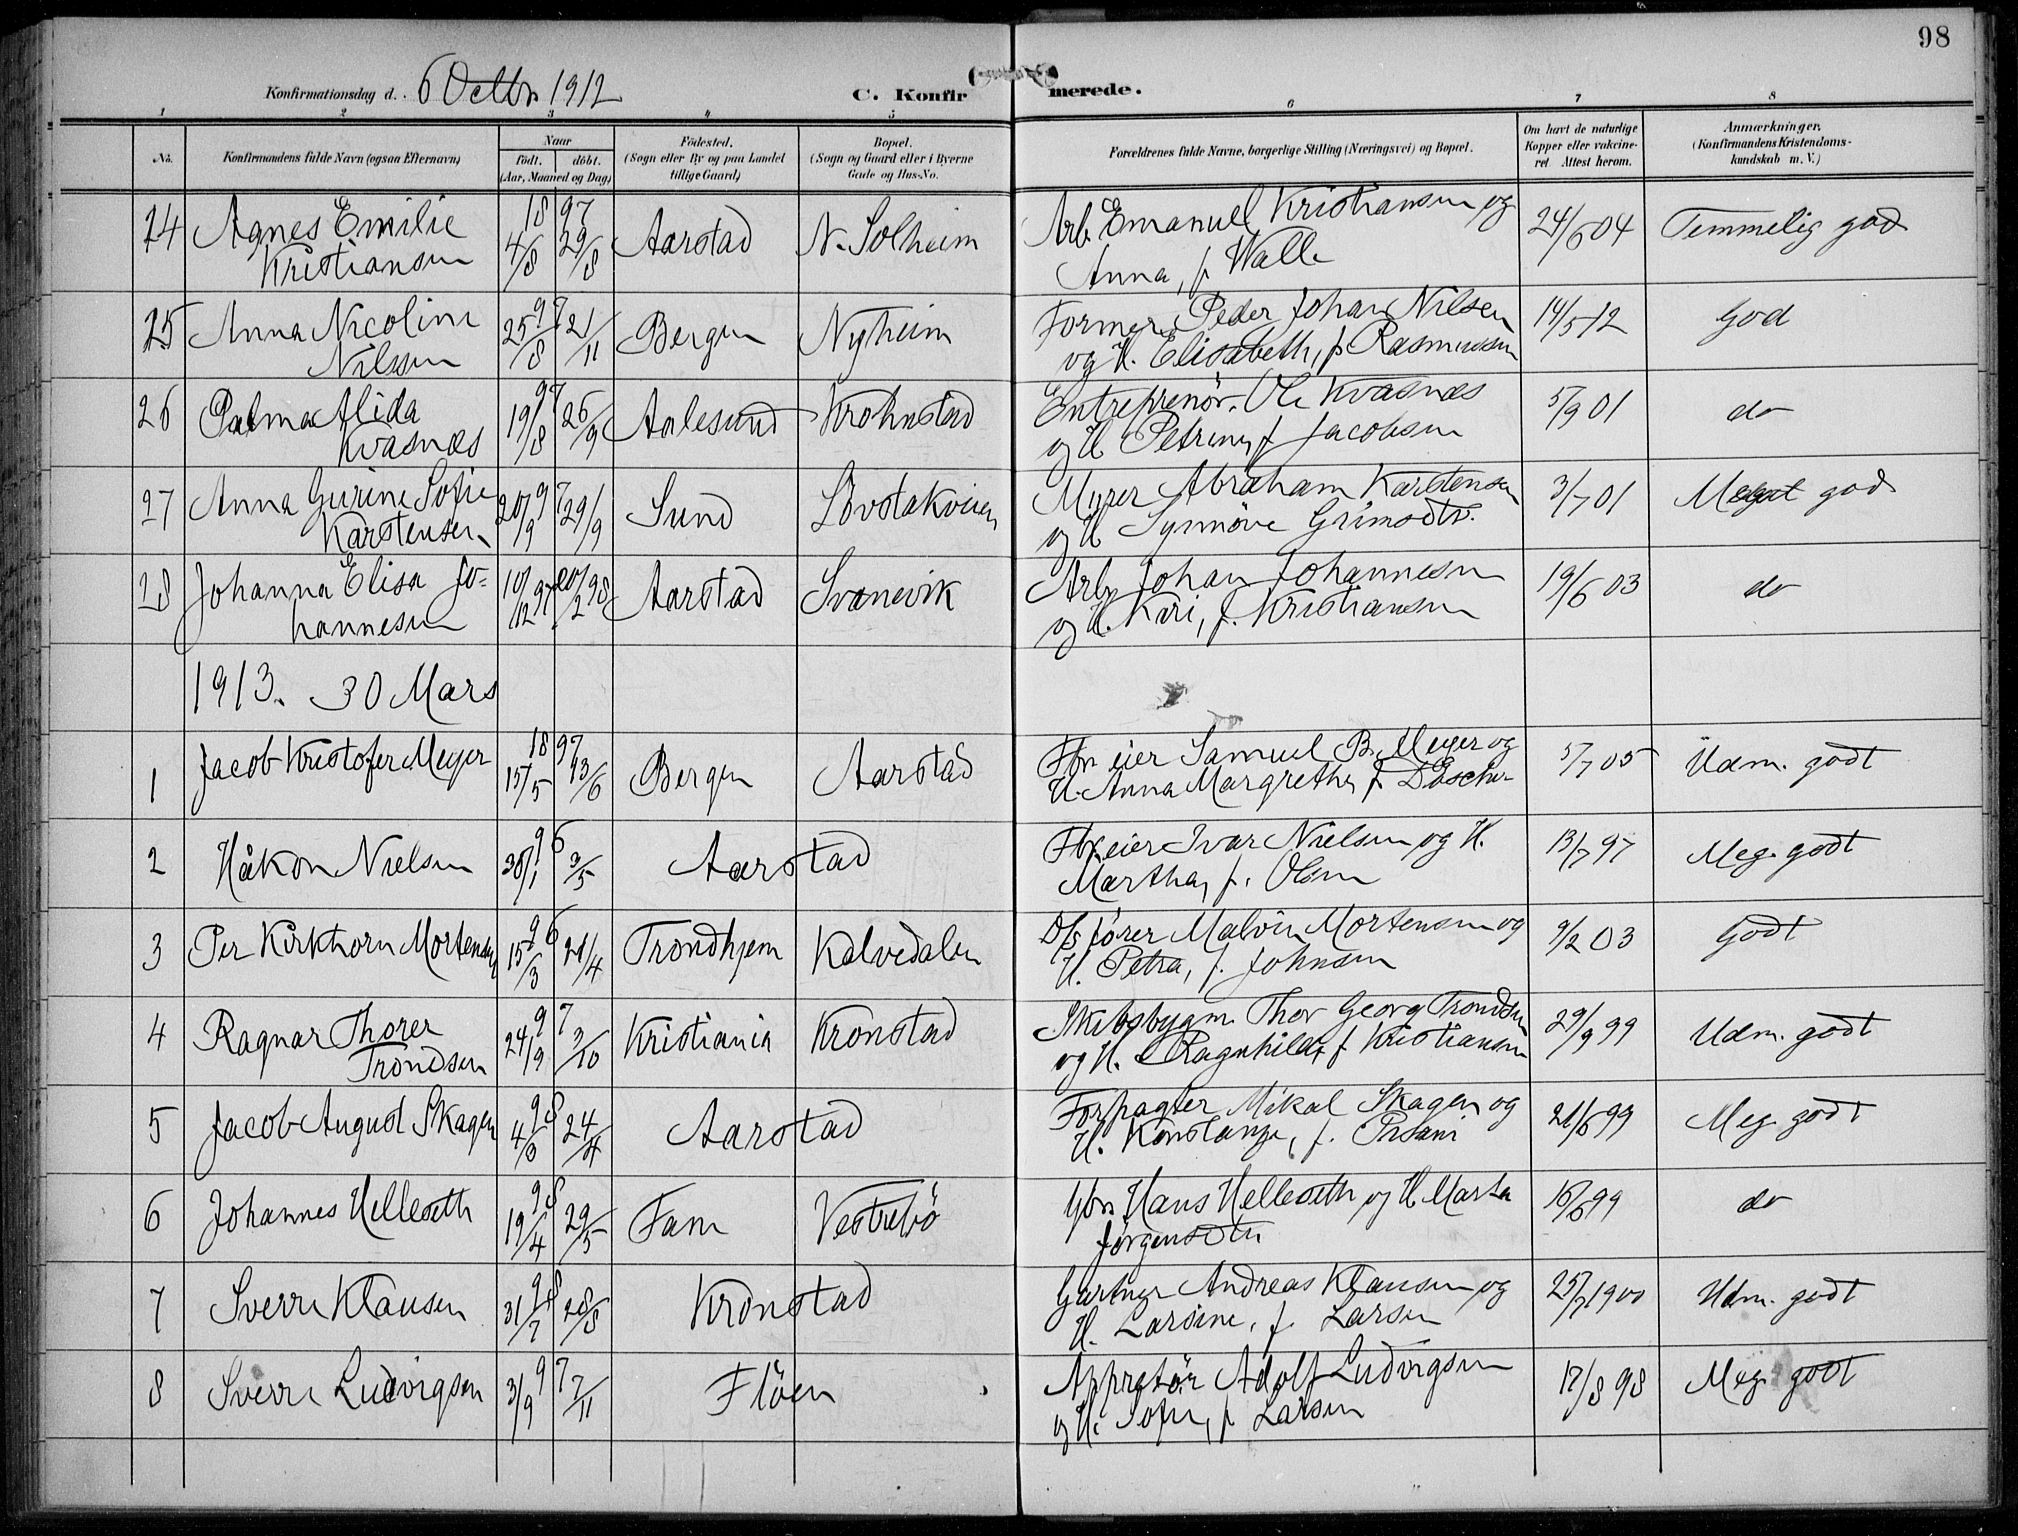 98
Konfirmationsdag d. 6 Octbr 1912
C. Konfirmerede.
1 2 3 4 5 6 7 8
No. Konfirmandens fulde Navn (ogsaa Efternavn) Naar födt. döbt. (Aar, Maaned og Dag) Födested. (Sogn eller By og paa Landet tillige Gaard) Bopæl. (Sogn og Gaard eller i Byerne Gade og Hus-No. Forældrenes fulde Navne, borgerlige Stilling (Næringsvei) og Bopæl. Om havt de naturlige Kopper eller vakcineret. Attest herom. Anmærkninger. (Konfirmandens Kristendomskundskab m. V.)
24 Agnes Emilie 18 97 4/8 29/8 Aarstad N. Solheim Arb. Emanuel Kristiansen og 24/6 04 Temmelig god
Kristiansen Anna, f. Walle
25 Anna Nicoline 97 25/8 21/11 Bergen Nyheim Former Peder Johan Nilsen 14/5 12 God
Nilsen og H. Elisabeth, f. Rasmussen
26 Palma Alida 97 19/8 26/9 Aalesund Krohnstad Entreprenör Ole Kvasnæs 5/9 01 do
Kvasnæs og H. Petrine, f. Jacobsen
27 Anna Gurine Sofie 97 20/9 29/9 Sund Lövstakvien Murer Abraham Karstensen 3/7 01 Meget god
Karstensen og H. Synnöve Grimsdtr.
28 Johanna Elisa Jo- 10/12 97 20/2 98 Aarstad Svanevik Arb. Johan Johannesen 19/6 03 do
hannesen og H. Kari, f. Kristiansen
1913. 30 Mars
1 Jacob Kristofer Meyer 18 97 15/5 13/6 Bergen Aarstad Fbr. eier Samuel B. Meyer og 5/7 05 Udm. godt
H. Anna Margrethe, f.
2 Håkon Nielsen 96 30/1 3/5 Aarstad Fbr. eier Ivar Nielsen og H. 13/7 97 Meg. godt
Martha, f. Olsen
3 Per Kirkhorn Mortensen 96 15/3 21/4 Trondhjem Kalvedalen D/S förer Malvin Mortensen og 9/2 03 Godt
H. Petra, f. Johnsen
4 Ragnar Thorer 97 24/9 3/10 Kristiania Kronstad Skibsbygm. Thor Georg Trondsen 29/9 99 Udm. godt
Trondsen og H. Ragnhild, f. Kristiansen
5 Jacob August Skagen 98 4/3 24/4 Aarstad Forpagter Mikal Skagen og 21/6 99 Meg. godt
H. Konstanze, f. Pisani
6 Johannes Helleseth 98 19/4 29/5 Fane Vestrebö Gbr. Hans Helleseth og H. Marta 16/6 99 do
Jörgensdtr.
7 Sverre Klausen 98 31/7 28/8 Kronstad Gartner Andreas Klausen og 25/7 1900 Udm. godt
H. Larsine, f. Larsen
8 Sverre Ludvigsen 97 3/9 7/11 Flöen Appretör Adolf Ludvigsen 17/8 98 Meg. godt
og H. Sofie, f. Larsen